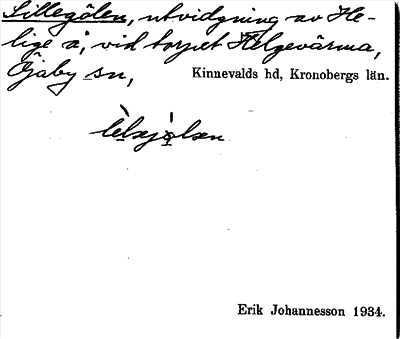 Lillegölen, utvidgning av He-
lige å, vid torpet Helgevärma,
Öjaby sn, Kinnevalds hd, Kronobergs län.
Erik Johannesson 1934.